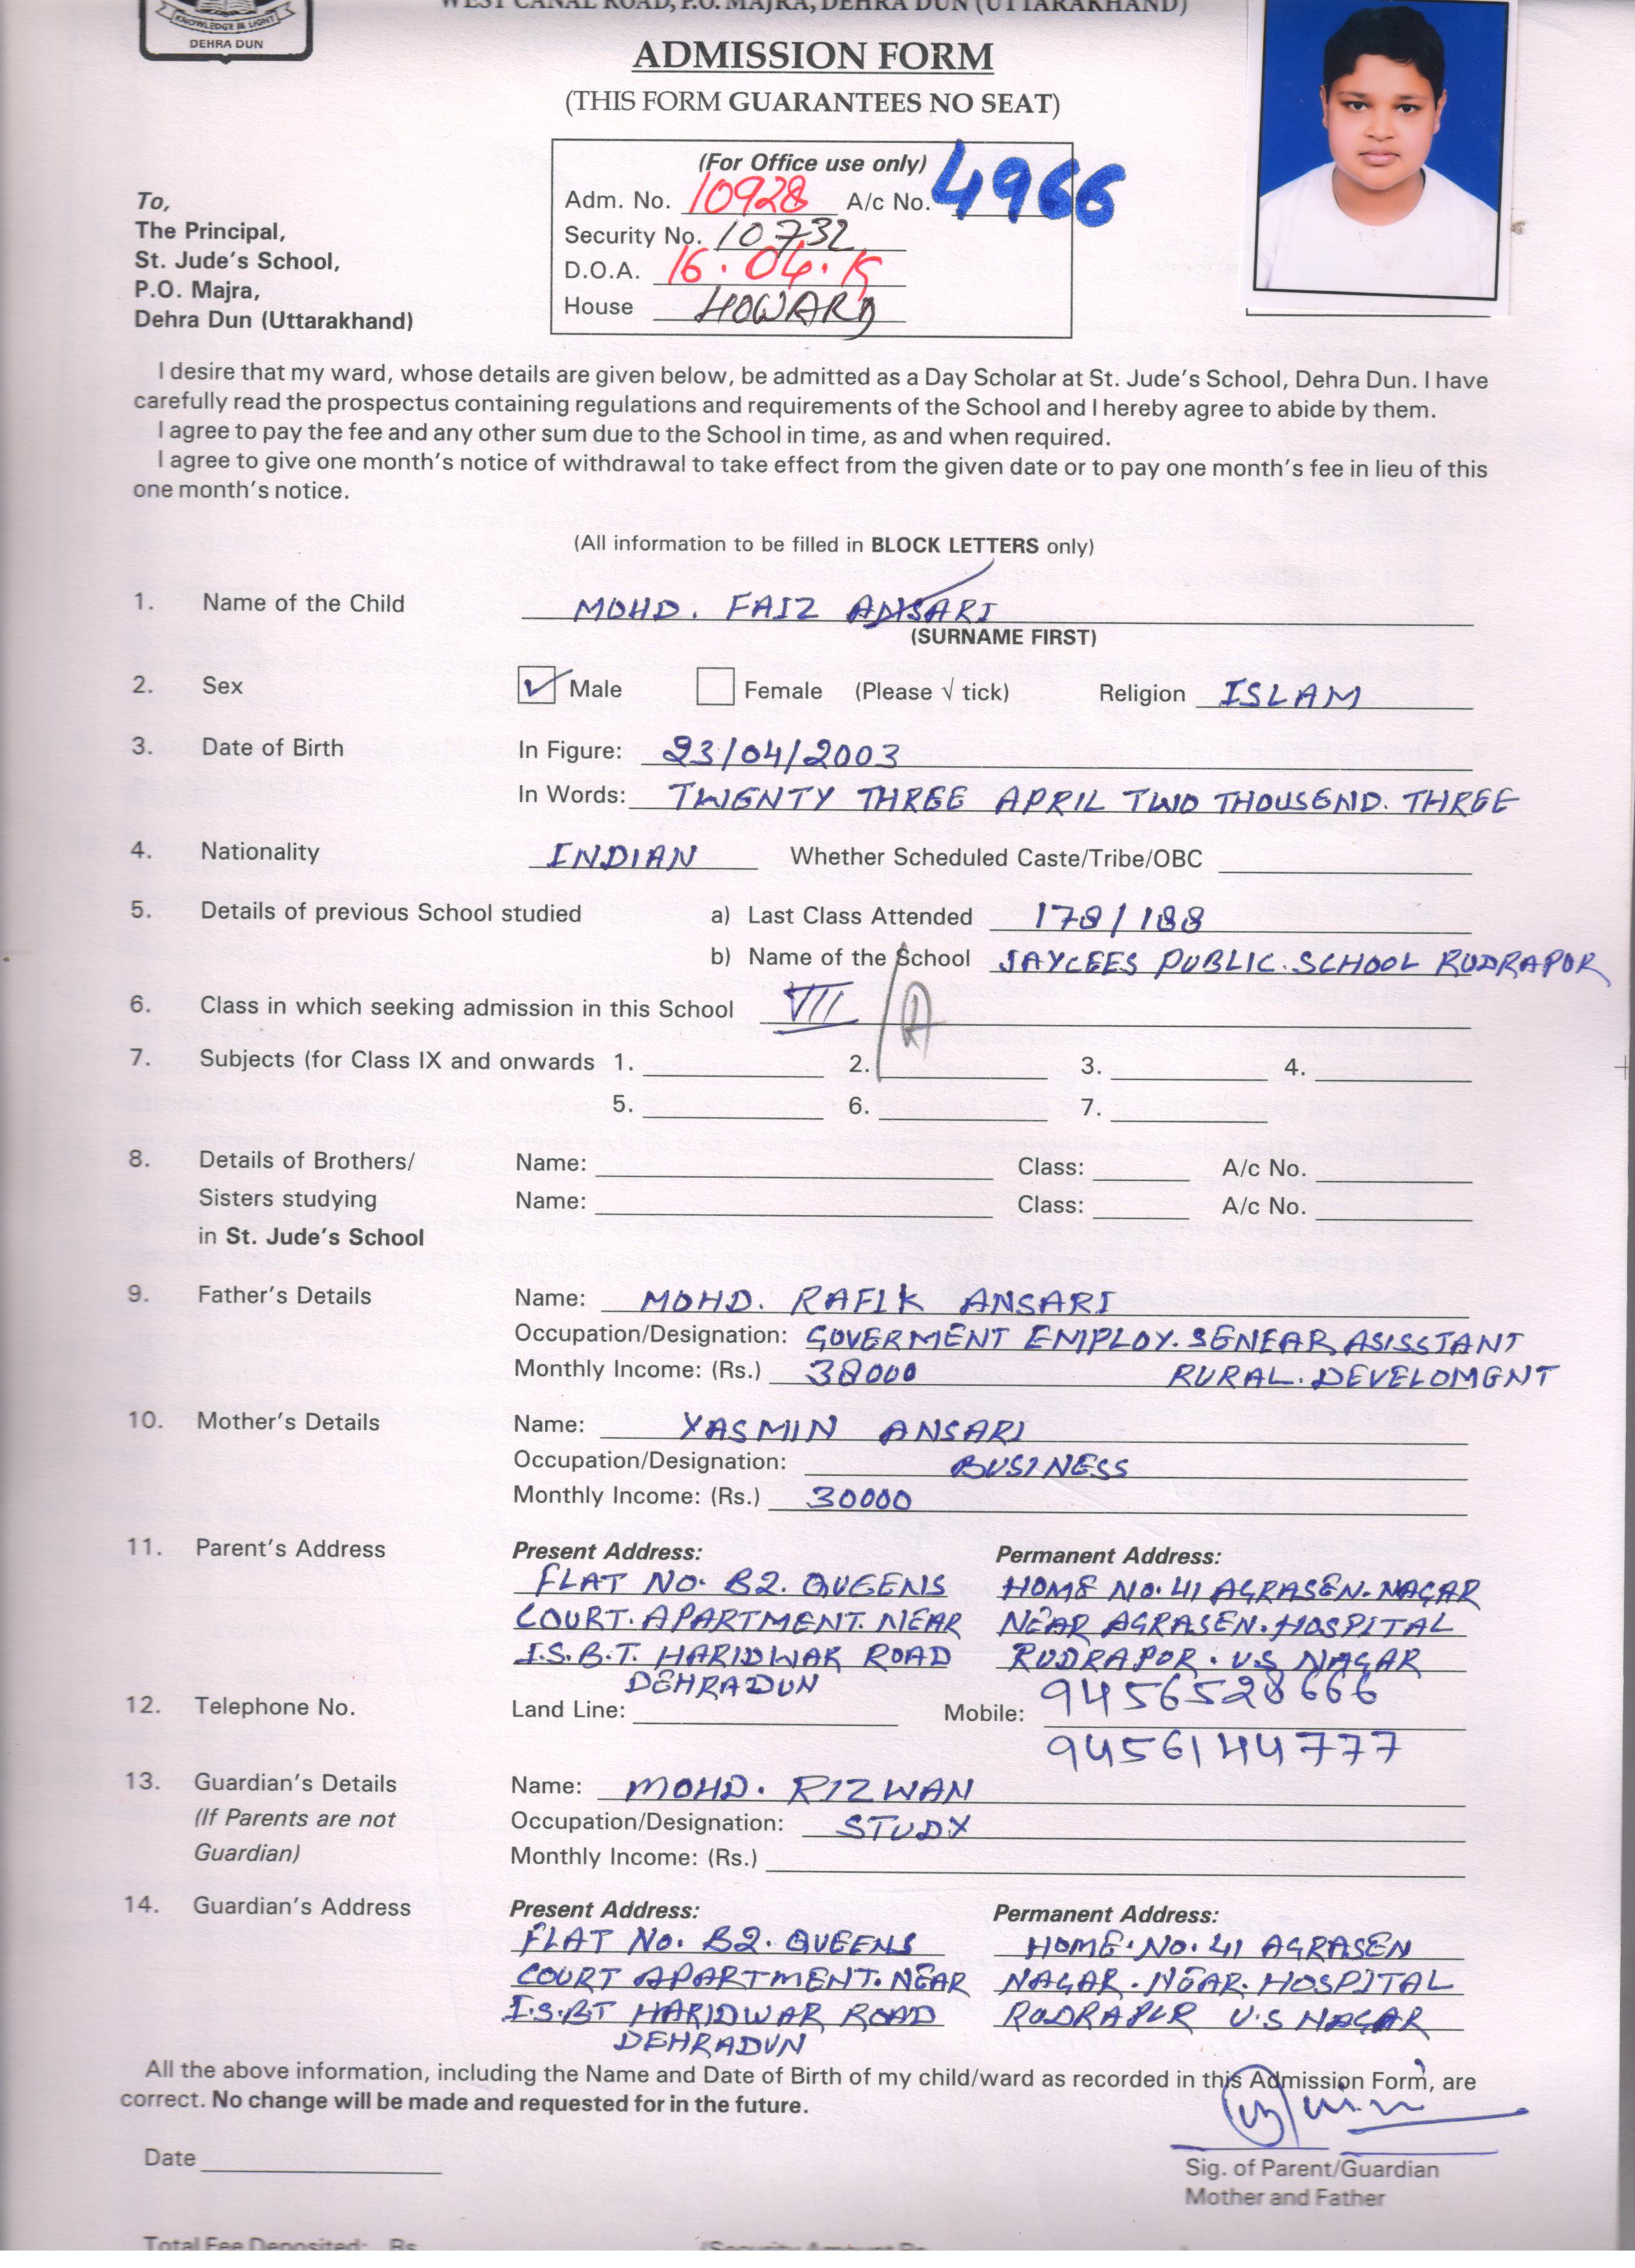 WEST CANAL ROAD, P.O. MAJRA, DEHRA DUN (UTTARAKHAND)
KNOWLEDGE IS LIGHT
DEHRA DUN
ADMISSION FORM
(THIS FORM GUARANTEES NO SEAT)
(For Office use only)
Adm. No. 10928 A/c No. 4966
Security No. 10732
D.O.A. 16.04.15
House HOWARD
To,
The Principal,
St. Jude's School,
P.O. Majra,
Dehra Dun (Uttarakhand)
I desire that my ward, whose details are given below, be admitted as a Day Scholar at St. Jude's School, Dehra Dun. I have
carefully read the prospectus containing regulations and requirements of the School and I hereby agree to abide by them.
I agree to pay the fee and any other sum due to the School in time, as and when required.
I agree to give one month's notice of withdrawal to take effect from the given date or to pay one month's fee in lieu of this
one month's notice.
(All information to be filled in BLOCK LETTERS only)
1. Name of the Child MOHD. FAIZ ANSARI
(SURNAME FIRST)
2. Sex Male Female (Please √ tick) Religion ISLAM
3. Date of Birth In Figure: 23/04/2003
In Words: TWENTY THREE APRIL TWO THOUSEND. THREE
4. Nationality INDIAN Whether Scheduled Caste/Tribe/OBC
5. Details of previous School studied a) Last Class Attended 178/188
b) Name of the School JAYCEES PUBLIC. SCHOOL RUDRAPUR
6. Class in which seeking admission in this School VII
7. Subjects (for Class IX and onwards 1. 2. 3. 4.
5. 6. 7.
8. Details of Brothers/ Name: Class: A/c No.
Sisters studying Name: Class: A/c No.
in St. Jude's School
9. Father's Details Name: MOHD. RAFIK ANSARI
Occupation/Designation: GOVERMENT EMPLOY. SENEAR ASISSTANT
Monthly Income: (Rs.) 38000 RURAL. DEVELOMENT
10. Mother's Details Name: YASMIN ANSARI
Occupation/Designation: BUSINESS
Monthly Income: (Rs.) 30000
11. Parent's Address Present Address: Permanent Address:
FLAT NO. B2. QUEENS HOME NO. 41 AGRASEN. NAGAR
COURT. APARTMENT. NEAR NEAR AGRASEN. HOSPITAL
I.S.B.T. HARIDWAR ROAD RUDRAPUR. U.S NAGAR
DEHRADUN
12. Telephone No. Land Line: Mobile: 9456528666
9456144777
13. Guardian's Details Name: MOHD. RIZWAN
(If Parents are not Occupation/Designation: STUDY
Guardian) Monthly Income: (Rs.)
14. Guardian's Address Present Address: Permanent Address:
FLAT NO. B2. QUEENS HOME. NO. 41 AGRASEN
COURT APARTMENT. NEAR NAGAR. NEAR. HOSPITAL
I.S.BT HARIDWAR ROAD RUDRAPUR U.S NAGAR
DEHRADUN
All the above information, including the Name and Date of Birth of my child/ward as recorded in this Admission Form, are
correct. No change will be made and requested for in the future.
Date
Sig. of Parent/Guardian
Mother and Father
Total Fee Deposited: Rs.